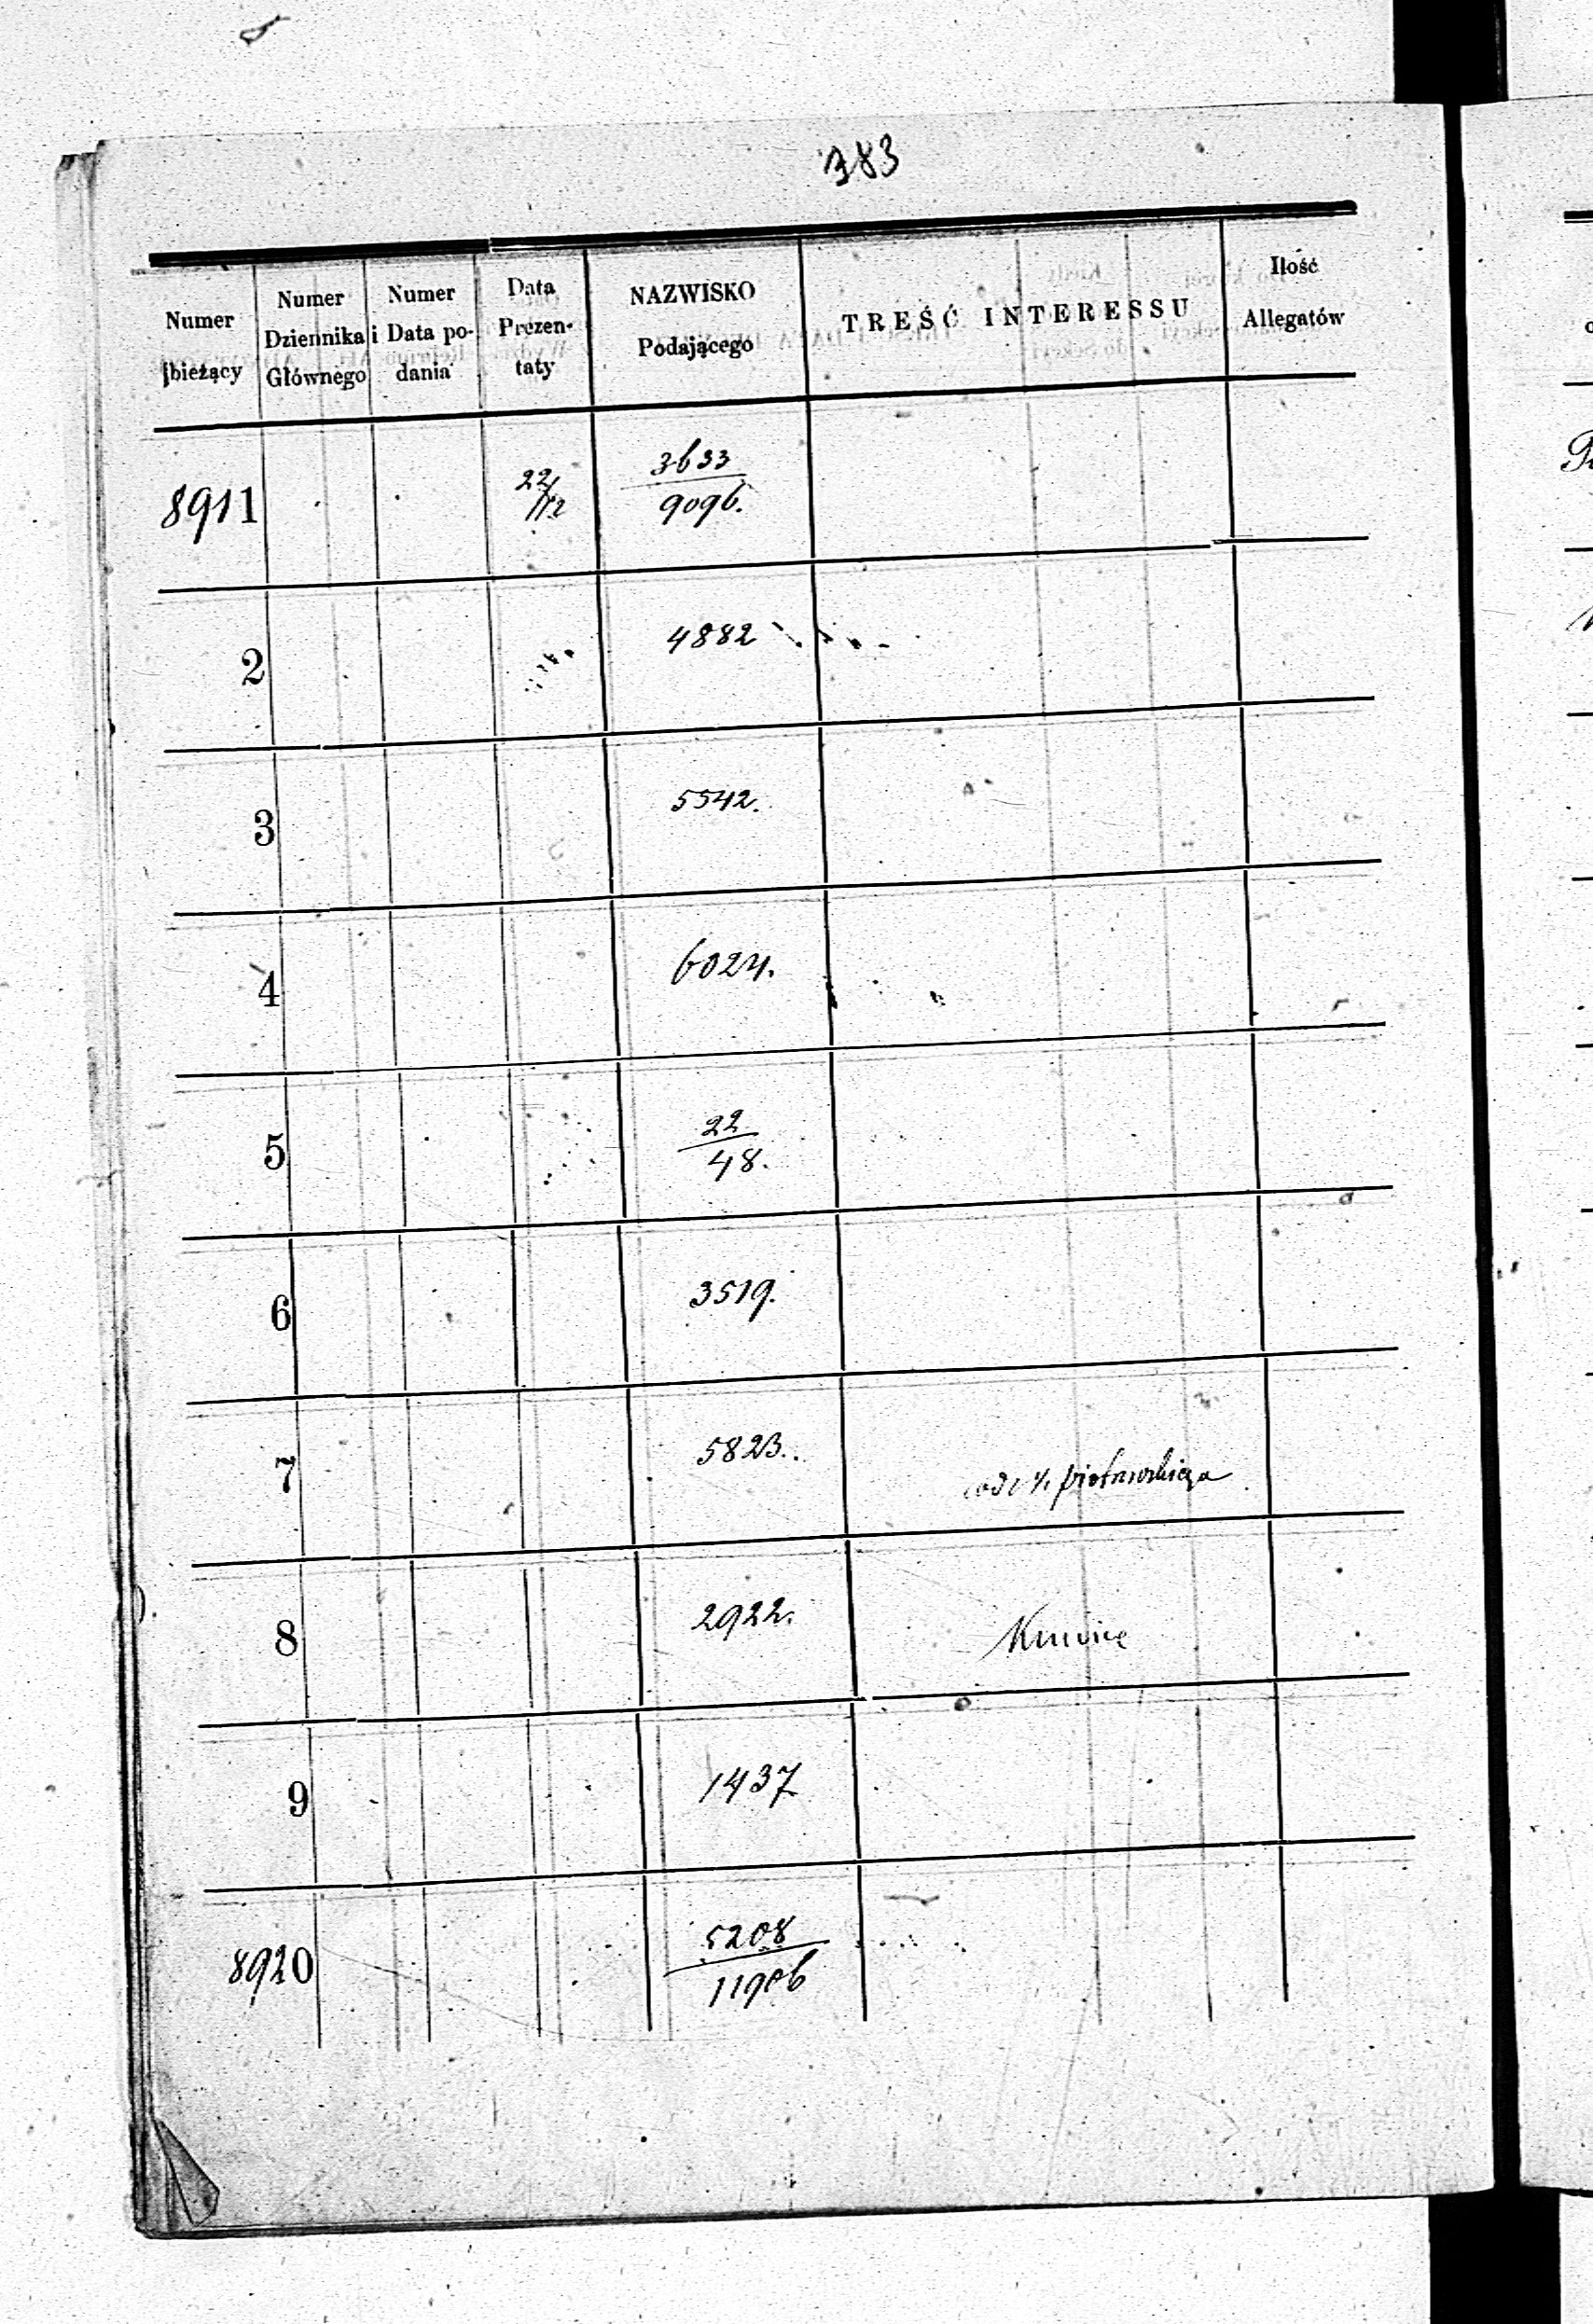 383
Numer bieżący
Numer Dziennika Głównego
Numer i Data podania
Data Prezentaty
NAZWISKO Podającego
TREŚĆ INTERESSU
Ilość Allegatów
8911 22/12 3633/9096.
2 4882
3 5542.
4 6024.
5 22/48.
6 3519.
7 5823.
8 2922.
9 1437
8920 5208/11906